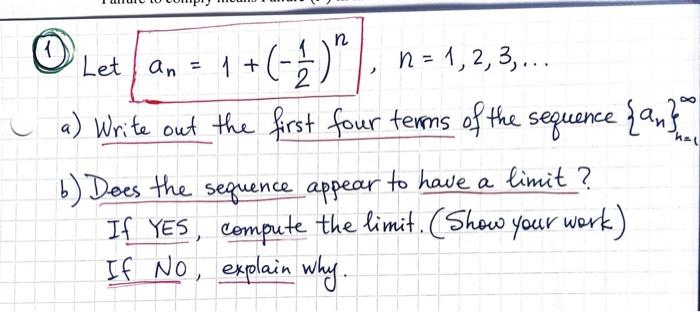 ① Let aₙ = 1 + (-1/2)ⁿ, n = 1, 2, 3, ...
a) Write out the first four terms of the sequence {aₙ}ₙ₌₁^∞
b) Does the sequence appear to have a limit?
If YES, compute the limit. (Show your work)
If NO, explain why.